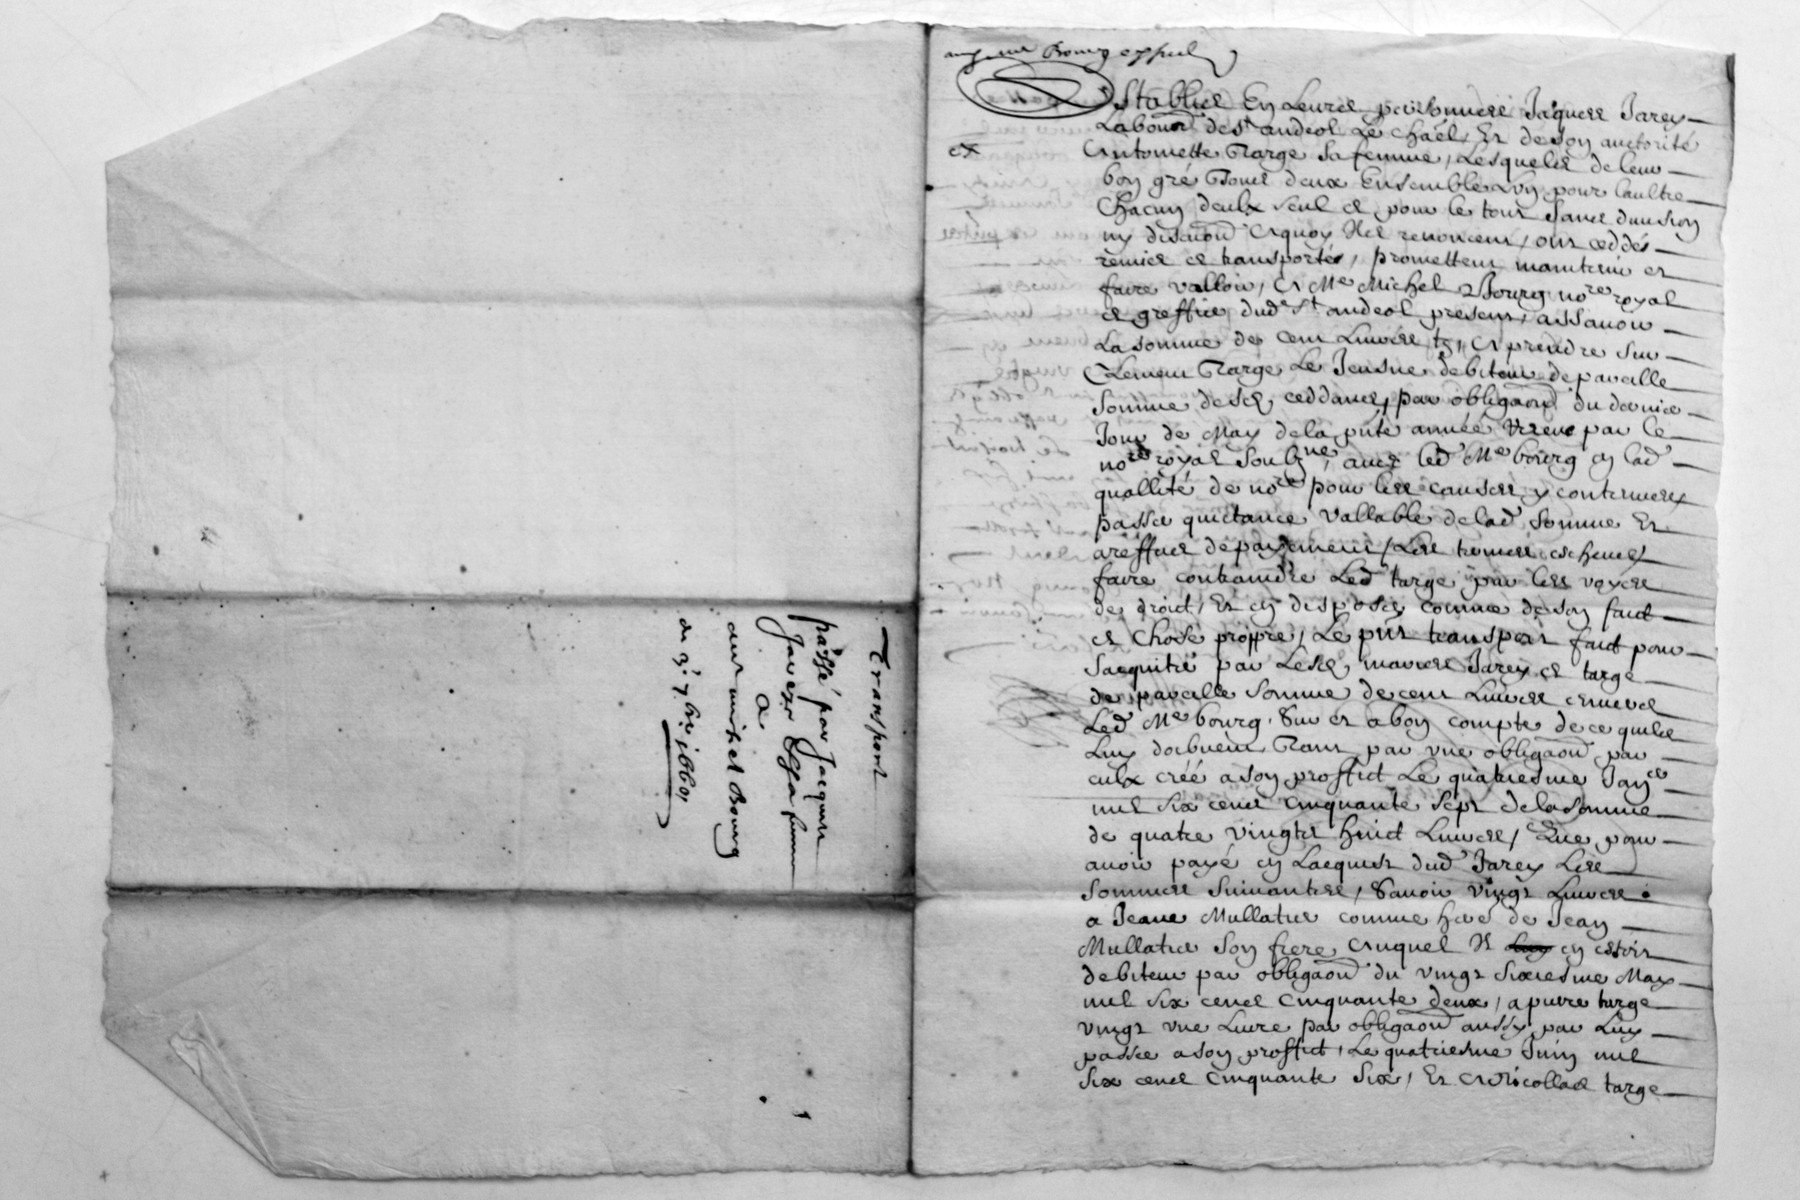 Transport
passé par Jacques
Jarey & sa femme
a
me michel Bourg
du 3e 7bre 1660
Bourg
Establies En Leures personnes Jaques Jarey
Labour de st andeol Le chael, Et de son auctorité
Antoinette Targe sa femme, Lesquelles de leur
bon gré Tous deux Ensemble Lun pour laultre
Chacun deulx seul et pour le tout sans diuision
ny discuon A quoy Ils renoncent, ont ceddés
remies et transportés, promettent maintenir et
faire valloir, A Me Michel Bourg nore royal
et greffier dud st andeol present, assauoir
La somme de cent Liures tz, A prendre sur
Clement Targe Le Jeusne debiteur de pareille
somme desd ceddants, par obligaon du dernier
Jour de May dela pnte année Receue par le
nore royal soubzne, auec led Me bourg en lad
quallité de nore pour les causes y contenues
passer quictance vallable delad somme Et
a reffuz de payement, Les termes escheues
faire contraindre Led targe par les voyes
de droict, Et en disposer comme de son faict
et chose propre, Le pnt transport faict pour
sacquiter par Lesd maries Jarey et targe
de pareille somme de cent Liures enuers
Led Me bourg, Sur et a bon compte de ce quilz
Luy doibuent Tant par vne obligaon par
eulx créé a son proffict Le quatriesme Janer
mil six cens Cinquante sept de la somme
de quatre vingts huict Liures, Que pour
auoir payé en Lacquit dud Jarey Les
sommes suiuantes, Sauoir vingt Liures
a Jeane Mullatier comme here de Jean
Mullatier son frere Auquel Il en estoit
debiteur par obligaon du vingt sixiesme May
mil six cens Cinquante deux, a pierre targe
vingt vne Liure par obligaon aussy par Luy
passée a son proffict, Le quatriesme Juin mil
six cens Cinquante six, Et A Nicollas targe